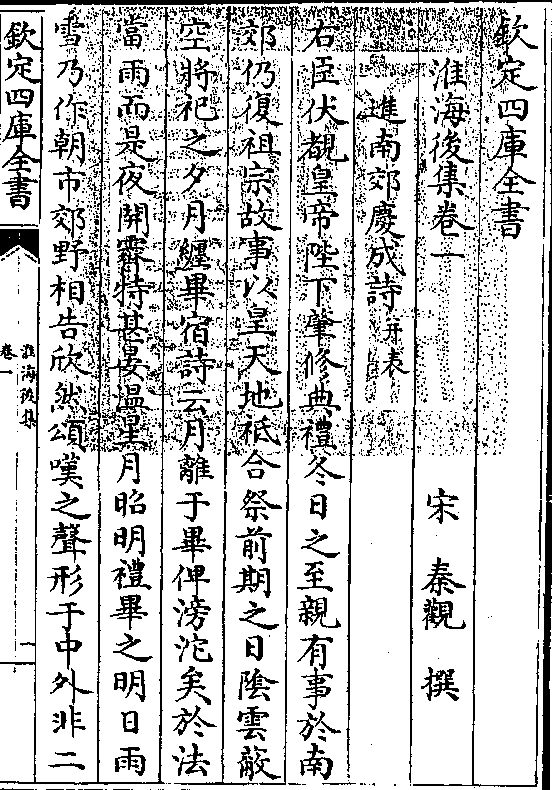 欽定四庫全書
淮海後集卷一
宋 秦觀 撰
進南郊慶成詩并表
右臣伏覩皇帝陛下肇修典禮冬日之至親有事於南
郊仍復祖宗故事以皇天地祇合祭前期之日陰雲蔽
空將祀之夕月纏畢宿詩云月離于畢俾滂沱矣於法
當雨而是夜開霽特甚晏溫星月昭明禮畢之明日雨
雪乃作朝市郊野相告欣然頌嘆之聲形于中外非二
欽定四庫全書
淮海後集
卷一
一